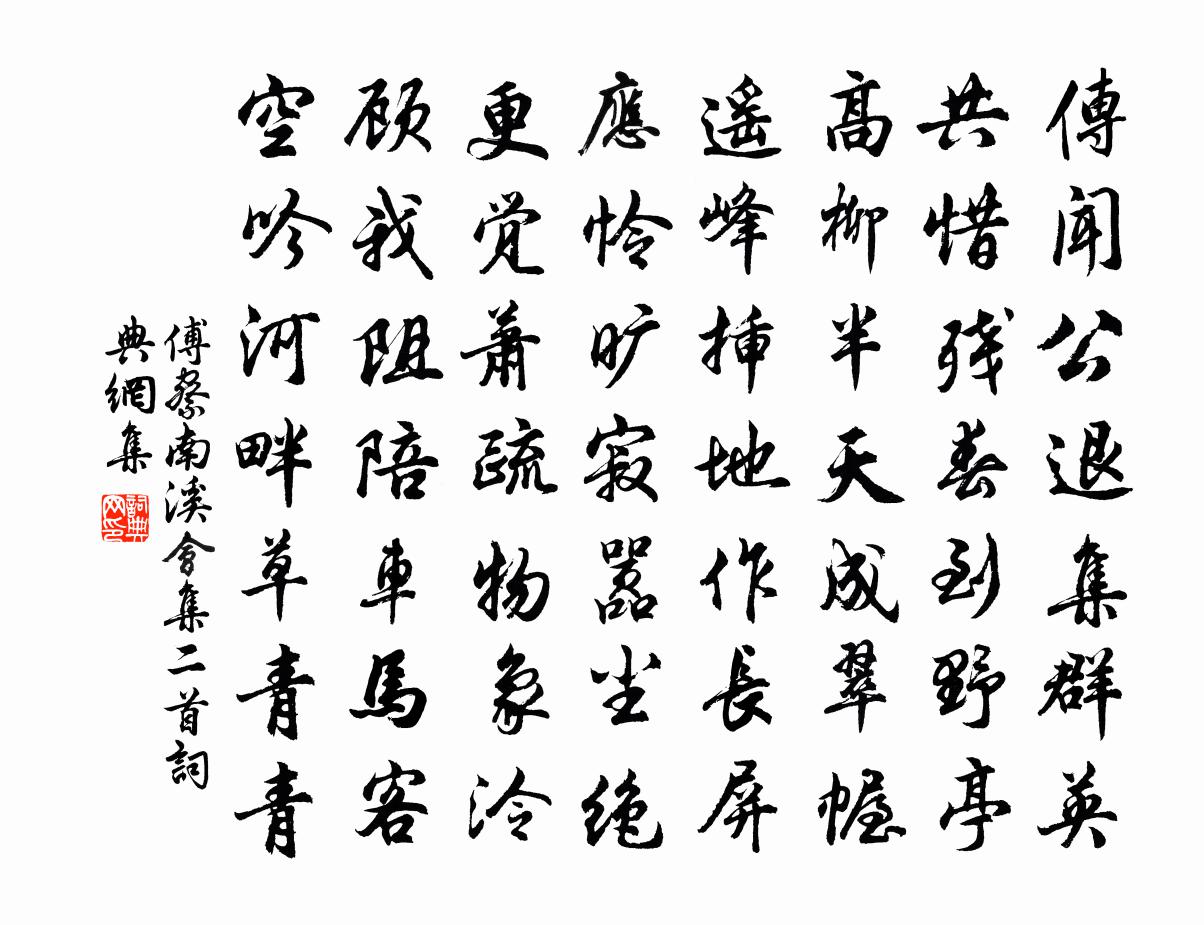 傳聞公退集群英
共惜残春到野亭
高柳半天成翠幄
遥峰揷地作長屏
應怜旷寂嚣尘绝
更觉萧疏物象泠
顾我阻陪車馬客
空吟河畔草青青
傅察南溪會集二首詞
典網集
詞典
网印